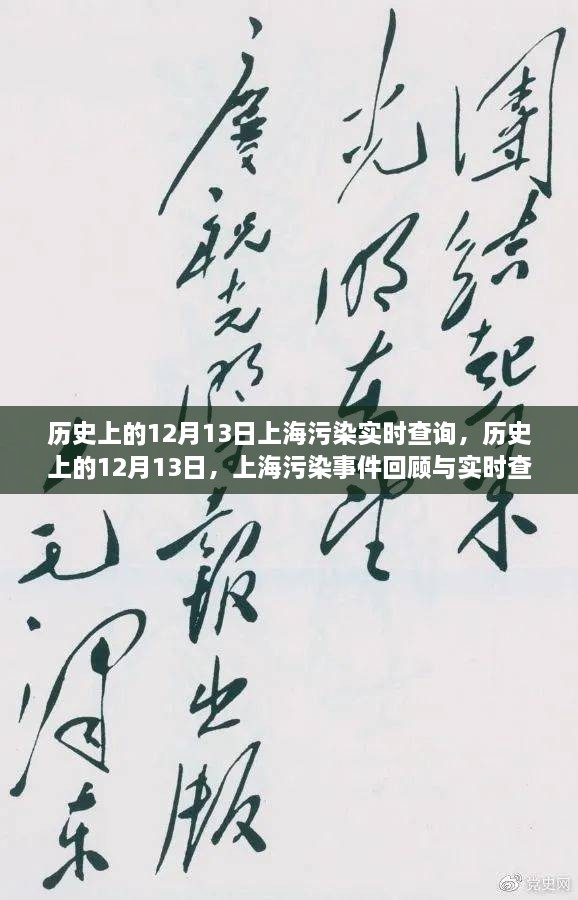 團結起来
光明在望
慶祝光明報出版
毛澤东
历史上的12月13日上海污染实时查询，历史
上的12月13日，上海污染事件回顾与实时查
党史网